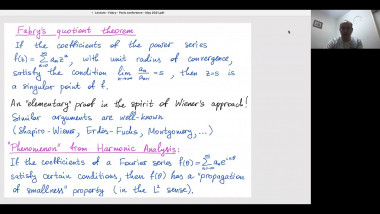 Lecture - Fabry - Paris conference - May 2021.pdf
Fabry's quotient theorem
If the coefficients of the power series
f(z)=∑_{n=0}^{∞} aₙzⁿ, with unit radius of convergence,
satisfy the condition lim_{n→∞} aₙ/aₙ₊₁ = s, then z=s is
a singular point of f.
An "elementary" proof in the spirit of Wiener's approach!
Similar arguments are well-known
(Shapiro-Wiener, Erdős-Fuchs, Montgomery,...)
"Phenomenon" from Harmonic Analysis:
If the coefficients of a Fourier series f(θ)=∑_{n=-∞}^{∞} aₙe^{inθ}
satisfy certain conditions, then f(θ) has a "propagation
of smallness" property (in the L² sense).